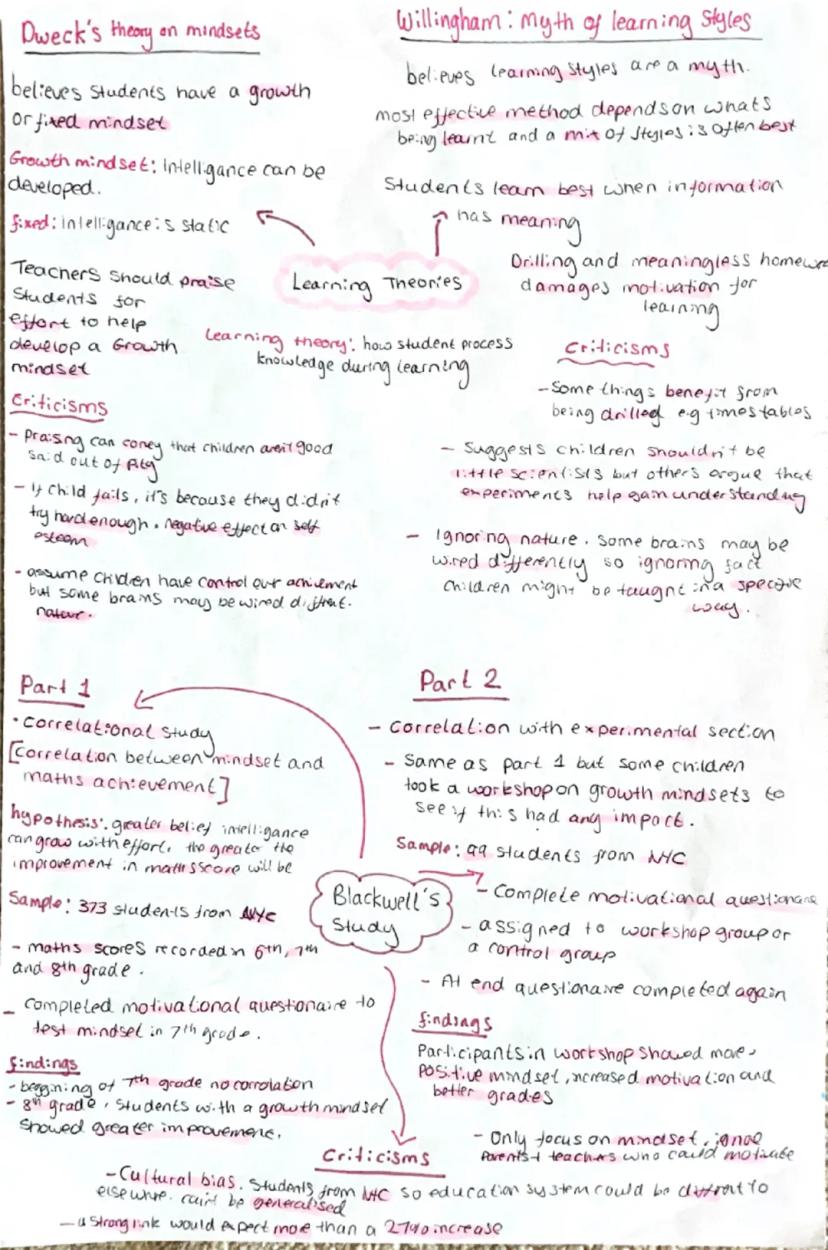 Dweck's theory on mindsets
believes students have a growth
or fixed mindset
Growth mindset: Intelligance can be
developed.
fixed: intelligance is static
Teachers should praise
students for
effort to help
develop a Growth
mindset
Criticisms
- Praising can coney that children aren't good
said out of pity
- If child fails, it's because they didn't
try hard enough. negative effect on self
esteem
- assume children have control over achievement
but some brains may be wired diffrent.
nature.
Learning Theories
Learning theory: how student process
knowledge during learning
Willingham: Myth of learning styles
believes learning styles are a myth.
most effective method depends on whats
being learnt and a mix of styles is often best
Students learn best when information
has meaning
Drilling and meaningless homewo
damages motivation for
learning
Criticisms
- Some things benefit from
being drilled e.g timestables
- Suggests children shouldn't be
little scientists but others argue that
experiments help gain understanding
- Ignoring nature. Some brains may be
wired differently so ignoring fact
children might be taught in a specific
way.
Part 1
• Correlational study
[Correlation between mindset and
maths achievement]
hypothesis: greater belief intelligance
can grow with effort, the greater the
improvement in maths score will be
Sample: 373 students from NYC
- maths scores recorded in 6th, 7th
and 8th grade.
- completed motivational questionaire to
test mindset in 7th grade.
findings
- beggining of 7th grade no corrolation
- 8th grade, students with a growth mindset
showed greater improvement.
Blackwell's
Study
Part 2
- Correlation with experimental section
- Same as part 1 but some children
took a workshop on growth mindsets to
see if this had any impact.
Sample: 99 students from NYC
- Complete motivational questionare
- assigned to workshop group or
a control group
- At end questionaire completed again
findings
Participants in workshop showed more
positive mindset, increased motivation and
better grades
Criticisms
- Only focus on mindset, ignoe
parents + teachers who could motivate
- Cultural bias. Students from NYC so education system could be diffrent to
elsewhere. can't be generalised
- a strong link would expect more than a 27% increase